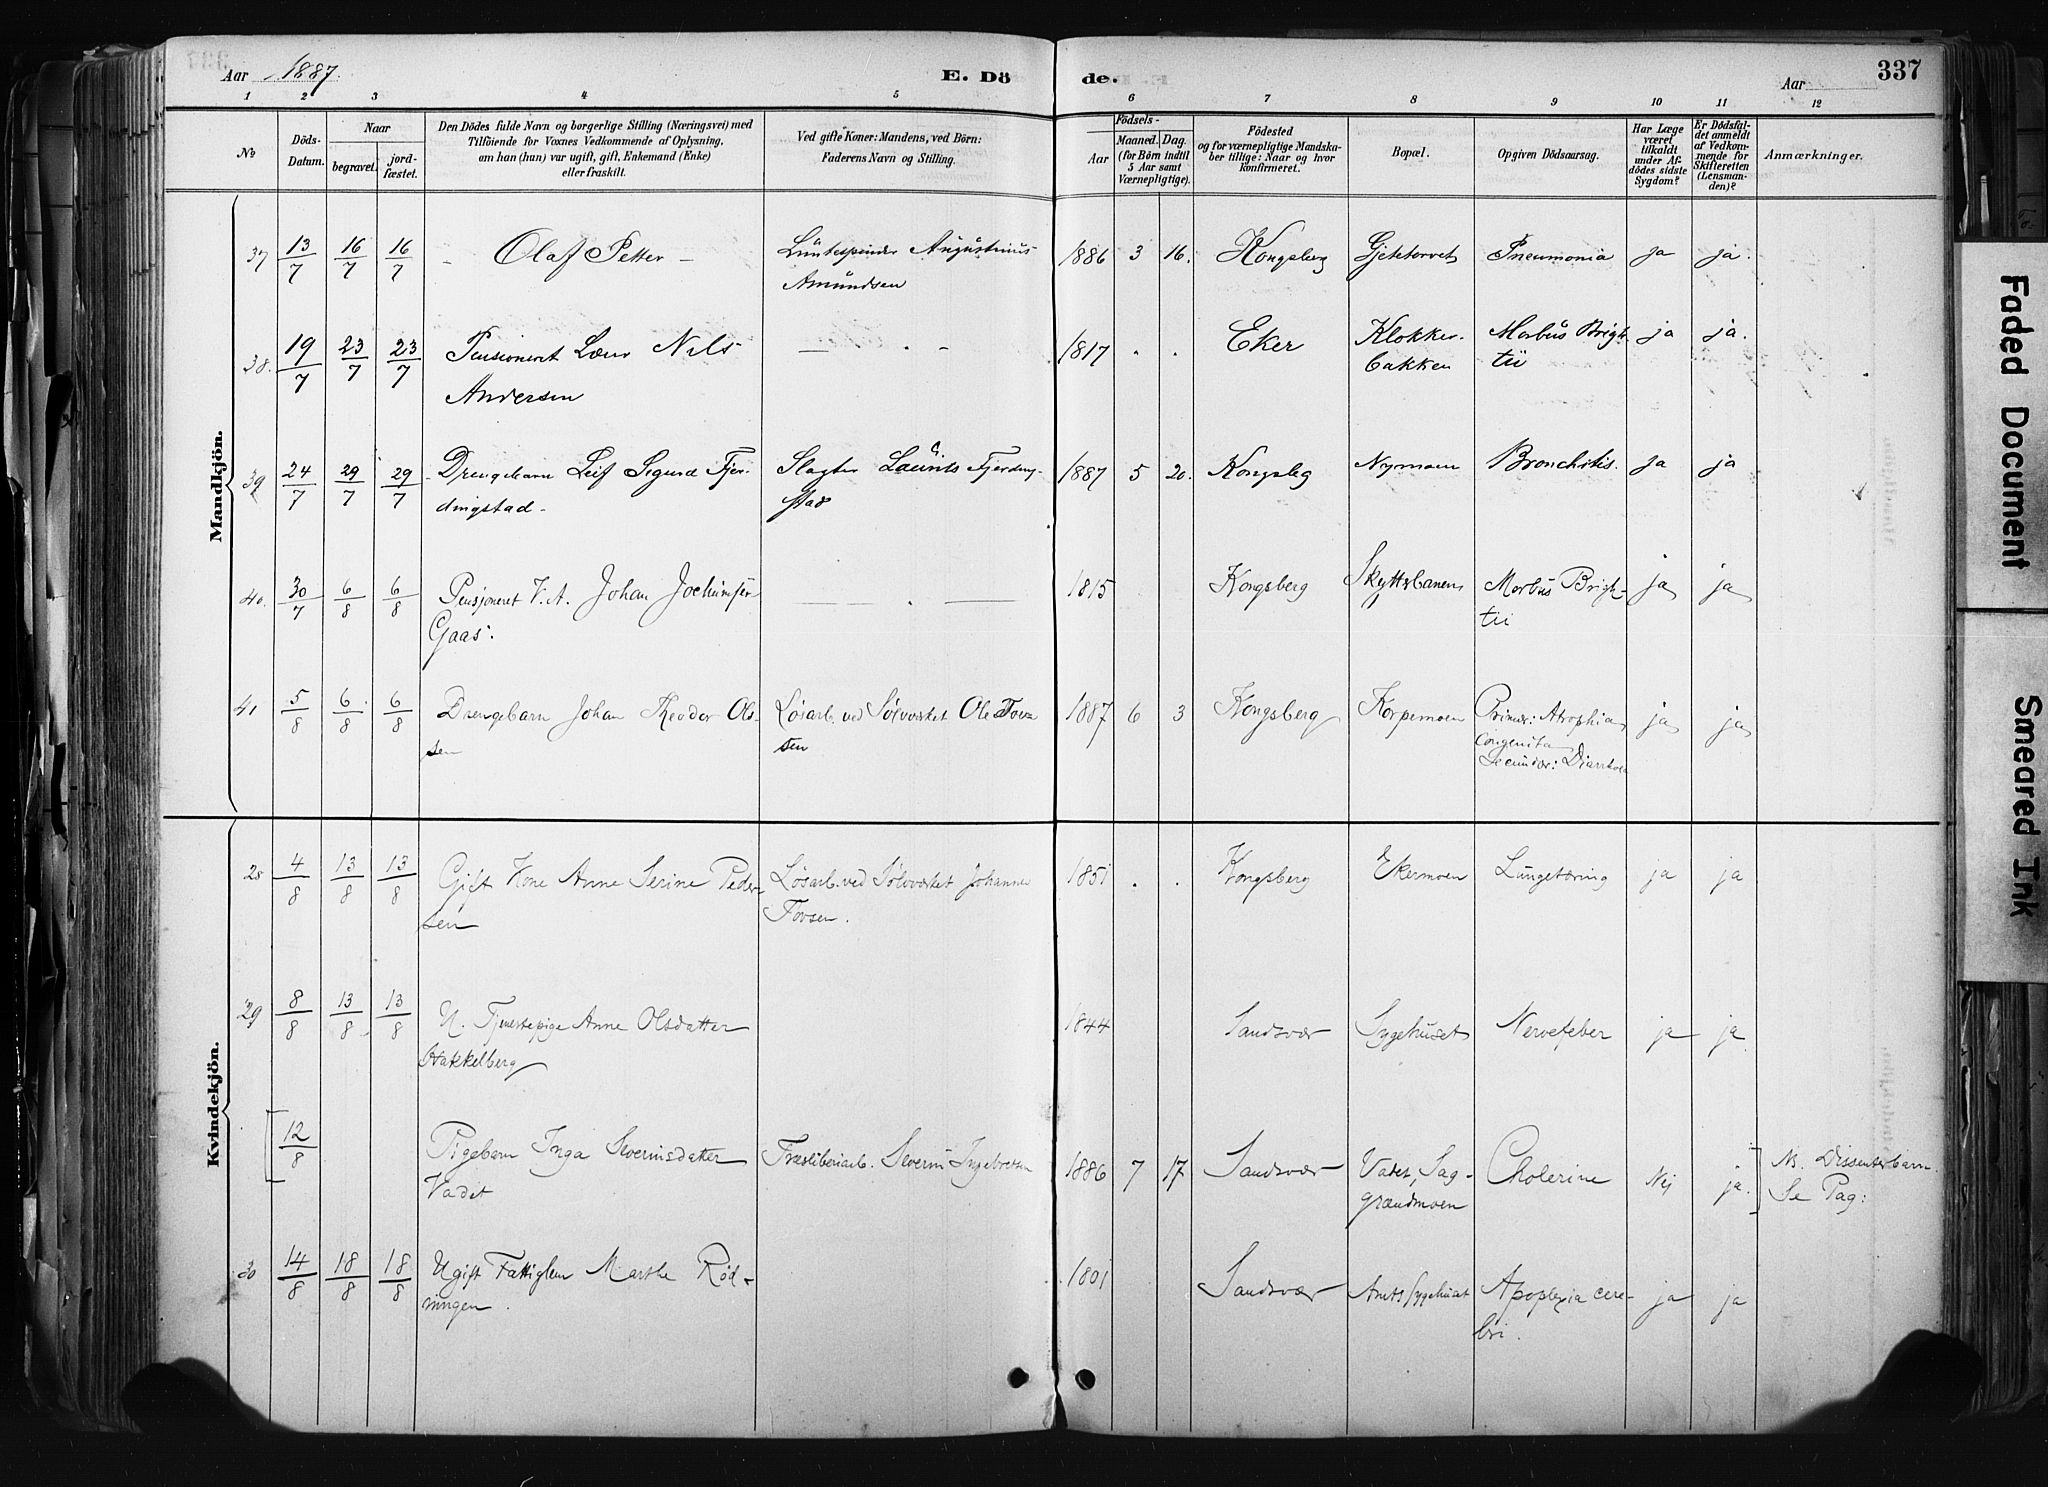 Aar 1887. E. Döde. Aar 337
1 2 3 4 5 6 7 8 9 10 11 12
No
Döds-Datum.
Naar
begravet.
jordfæstet.
Den Dödes fulde Navn og borgerlige Stilling (Næringsvei) med
Tilföiende for Voxnes Vedkommende af Oplysning,
om han (hun) var ugift, gift, Enkemand (Enke)
eller fraskilt.
Ved gifte Koner: Mandens, ved Börn:
Faderens Navn og Stilling.
Födsels-
Aar
Maaned. Dag.
(for Börn indtil
5 Aar samt
Værnepligtige).
Födested
og for værnepligtige Mandska-
ber tillige: Naar og hvor
konfirmeret.
Bopæl.
Opgiven Dödsaarsag.
Har Læge
været
tilkaldt
under Af-
dödes sidste
Sygdom?
Er Dödsfal-
det anmeldt
af Vedkom-
mende for
Skifteretten
(Lensman-
den)?
Anmærkninger.
Mandkjön.
37 13/7 16/7 16/7 - Olaf Petter - Luntespinder Augustinius 1886 3 16. Kongsberg Gjetetorvet Pneumonia ja ja.
Amundsen
38. 19/7 23/7 23/7 Pensioneret Læur Nils — . - 1817 . . Eker Klokker- Morbus Brigh- ja ja.
Andersen bakken tii
39 24/7 29/7 29/7 Drengebarn Leif Sigurd Fjer- Slagter Laurits Fjerding- 1887 5 20. Kongsbg Nymoen Bronchitis. Ja ja
dingstad - stad
40. 30/7 6/8 6/8 Pensjoneret V. A. Johan Jochumsen — . — 1815 Kongsberg Skytterbanen Morbus Brigh- ja ja
Gaas. tii
41 5/8 6/8 6/8 Drengebarn Johan Theodor Ol- Løsarb. ved Sølvværket Ole Tov- 1887 6 3 Kongsberg Korpemoen Primær: Atrophia ja ja
sen sen congenita
Secundær: Diarrhoea
Kvindekjön.
28 4/8 13/8 13/8 Gift Kone Anne Serine Peder- Løsarb. ved Sølvværket Johannes 1851 . . Kongsberg Ekermoen Lungetæring ja ja
sen Tovsen.
29 8/8 13/8 13/8 U. Tjenestepige Anne Olsdatter 1844 Sandsvær Sygehuset Nervefeber ja ja
Hakkelberg
[ 12/8 Pigebarn Inga Severinsdatter Træsliberiarb. Severin Ingebretsen 1886 7 17 Sandsvær Vadet, Sag- Cholerine Nej ja. ] N. Dissenterbarn.
Vadet grændmoen Se Pag:
30 14/8 18/8 18/8 Ugift Fattiglem Marthe Rød- 1801 Sandsvær Amts sygehuset Apoplexia cere- ja ja
ningen. bri.
Faded Document
Smeared Ink